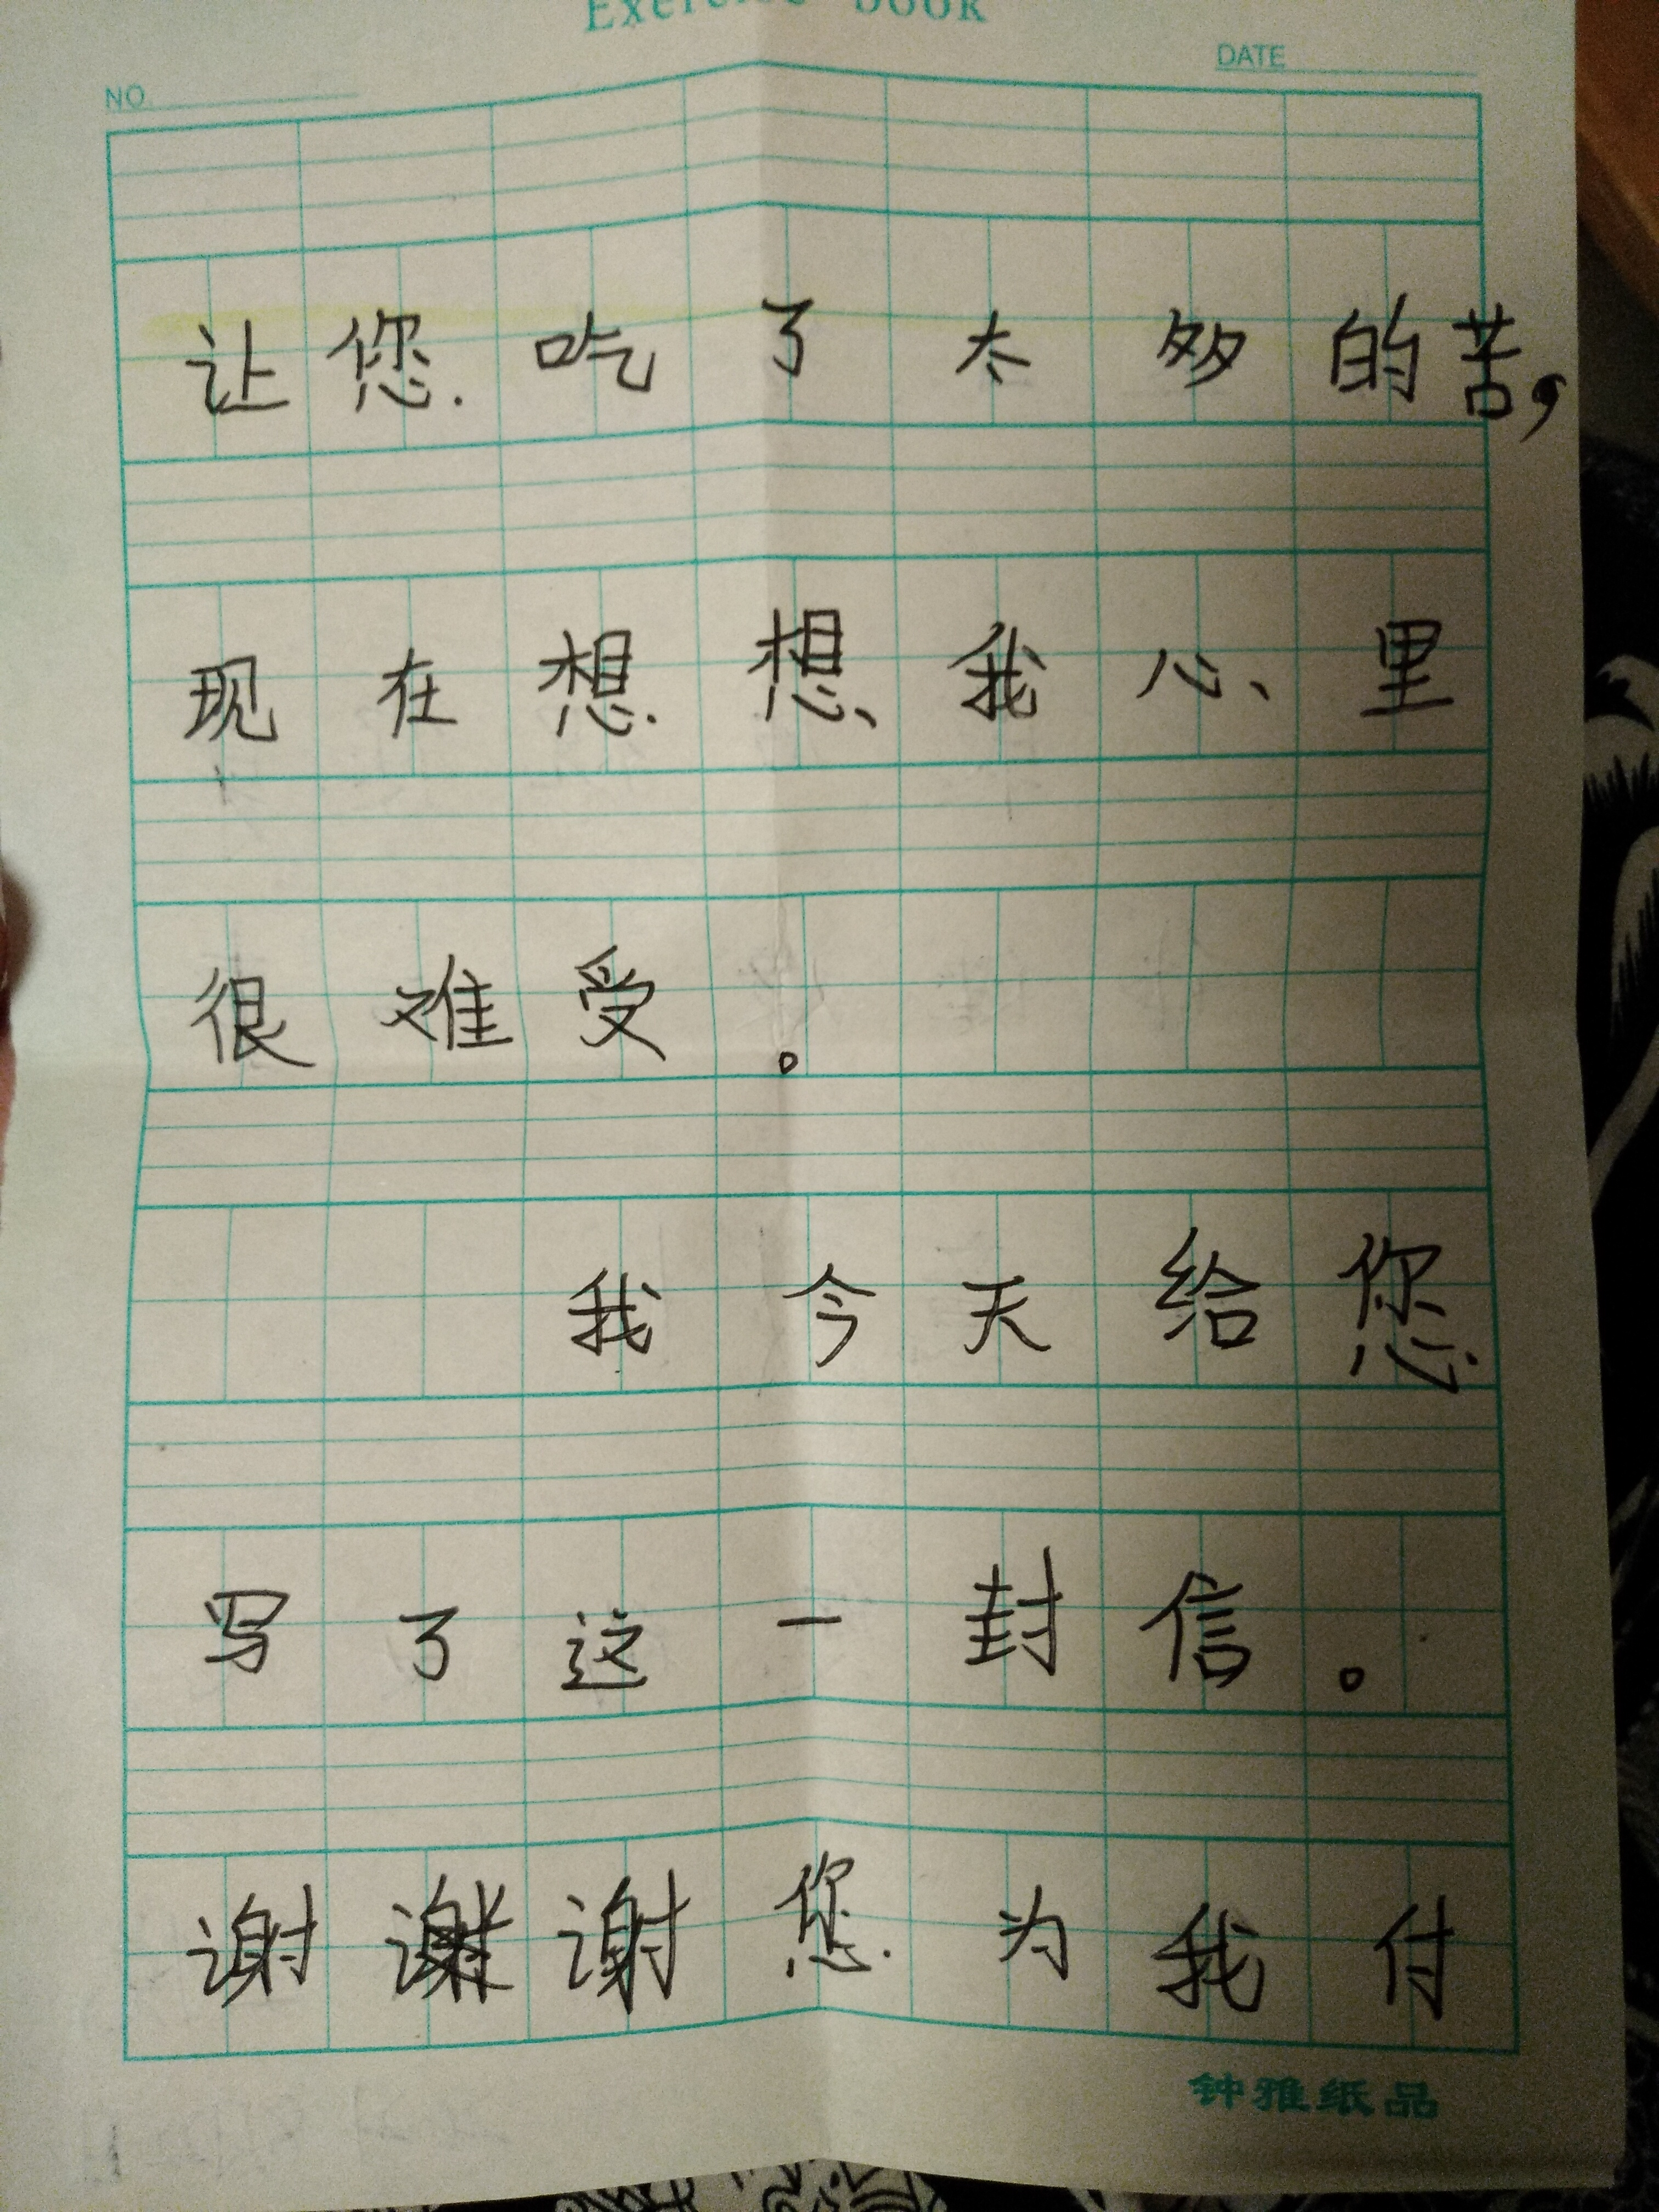 Exercise book
NO
DATE
让您吃了太多的苦，
现在想想我心里
很难受。
我今天给您
写了这一封信。
谢谢谢您为我付
钟雅纸品